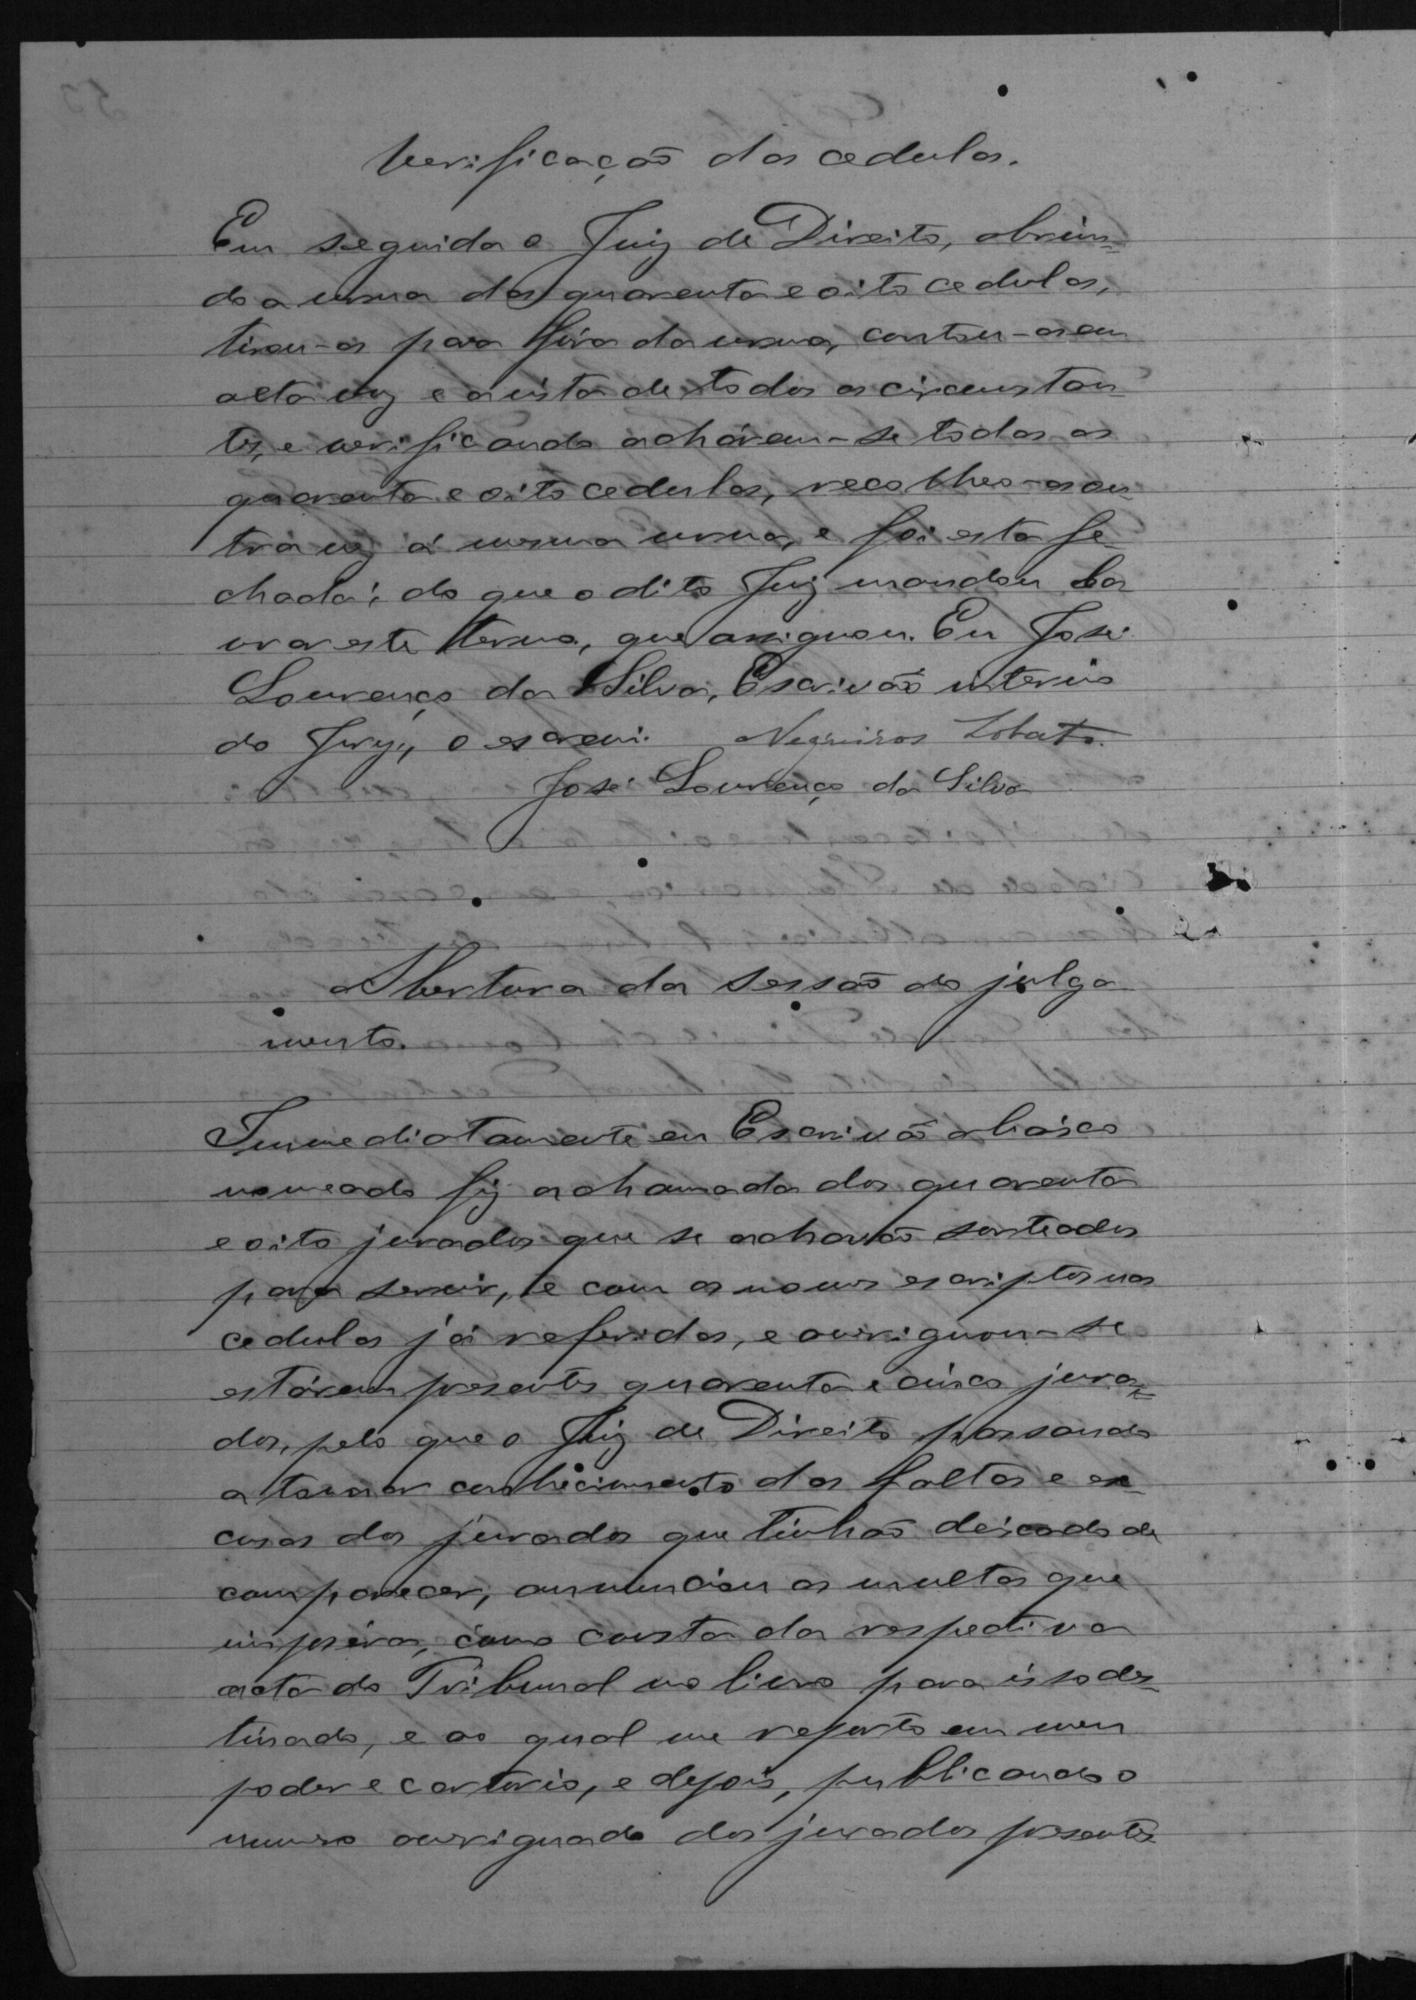 Verificação das cedulas.
Em seguida o Juiz de Direito, abrin-
do a urna das quarenta e oito cedulas,
tirou-as para fóra da urna, contou-as em
alta voz e á vista de todos os circunstan-
tes, e verificando acharem-se todas as
quarenta e oito cedulas, recolheo-as ou-
tra vez á mesma urna, e foi esta fe-
chada; do que o dito Juiz mandou la-
vrar este termo, que assignou. Eu José
Lourenço da Silva, Escrivão interino
do Jury, o escrevi. Negreiros Lobato.
José Lourenço da Silva
Abertura da sessão do julga-
mento.
Immediatamente eu Escrivão abaixo
nomeado fiz a chamada dos quarenta
e oito jurados que se achavão sorteados
para servir, e com os nomes escriptos nas
cedulas já referidas, e averiguou-se
estárem presentes quarenta e cinco jura-
dos, pelo que o Juiz de Direito passando
a tomar conhecimento das faltas e es-
cusas dos jurados que tinhão deixado de
comparecer, annunciou as multas que
impuséra, como consta da respectiva
acta do Tribunal no livro para isso des-
tinado, e ao qual me reporto em meu
poder e cartorio, e depois, publicando o
numero averiguado dos jurados presentes